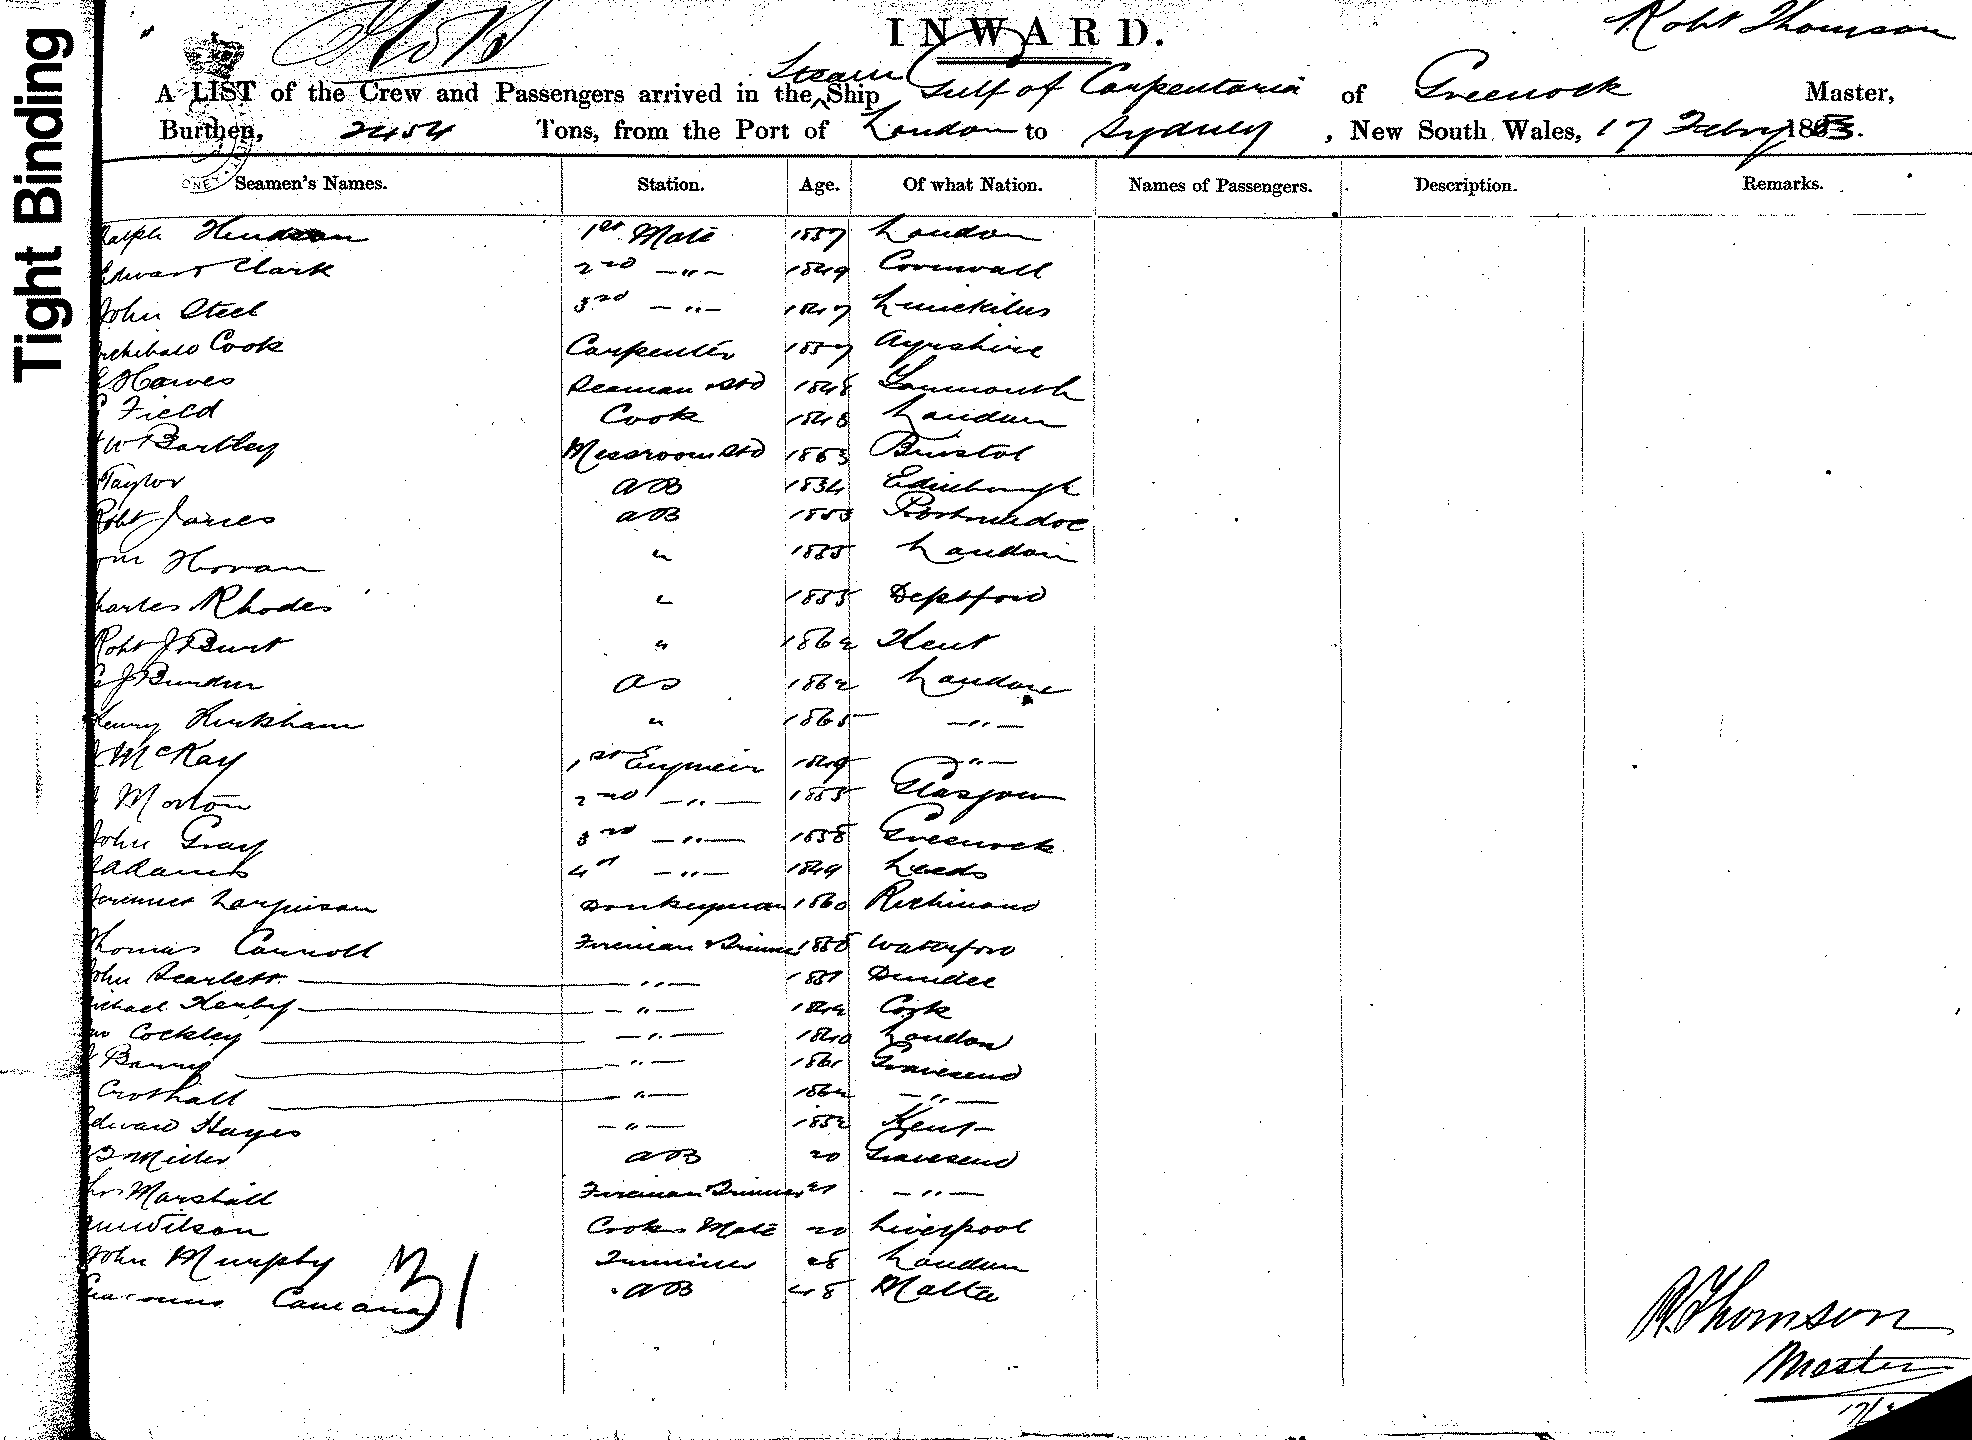 Tight Binding
INWARD.
Robt Thomson
A LIST of the Crew and Passengers arrived in the Steam Ship Gulf of Carpentaria of Greenock Master,
Burthen, 2454 Tons, from the Port of London to Sydney, New South Wales, 17 Febry 188
Seamen's Names. Station. Age. Of what Nation. Names of Passengers. Description. Remarks.
Ralph 1st Mate 1857 London
Edward Clark 2nd —"— 1849 Cornwall
John Steel 3rd —"— 1847
Archibald Cook Carpenter 1857 Ayrshire
Hawes Seaman & Std 1848 Yarmouth
Field Cook 1848 London
W Bartley Messroom Std 1863 Bristol
Taylor AB 1834 Edinburgh
Robt James AB 1853 Portmadoc
Horan " 1855 London
Charles Rhodes " 1855 Deptford
Robt J Burt " 1862 Kent
J OS 1862 London
Henry Kirkham " 1865 —"—
McKay 1st Engineer 1849 —"—
Morton 2nd —"— 1855 Glasgow
John Gray 3rd —"— 1858 Greenock
Adams 4th —"— 1849 Leeds
Donkeyman 1860 Richmond
Thomas Carroll Fireman & Trimmer 1858 Waterford
John Scarlett —"— Dundee
Michael —"— Cork
Cockley —"— 1840 London
Barry —"— 1861 Gravesend
Crothall —"— 1862 —"—
Edward Hayes —"— 1852 Kent
Miller AB 20 Gravesend
Thos Marshall Fireman Trimmer 21 —"—
Wm Wilson Cooks Mate 20 Liverpool
John Murphy Trimmer 28 London
AB 48 Malta
31
R. Thomson
Master